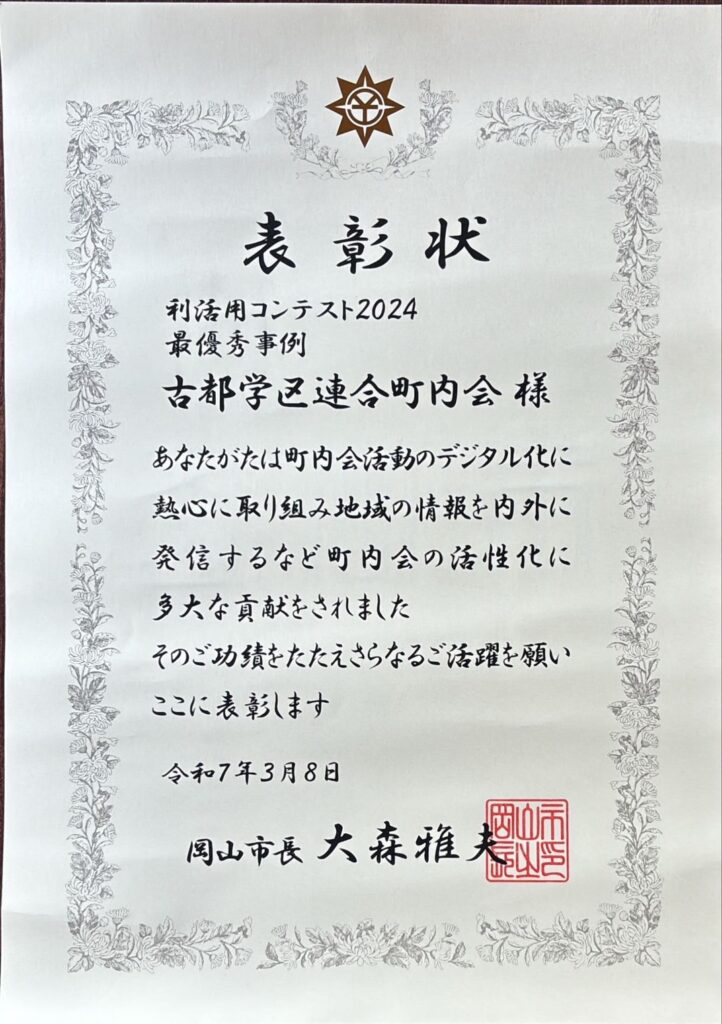 表彰状
利活用コンテスト2024
最優秀事例
古都学区連合町内会 様
あなたがたは町内会活動のデジタル化に
熱心に取り組み地域の情報を内外に
発信するなど町内会の活性化に
多大な貢献をされました
そのご功績をたたえさらなるご活躍を願い
ここに表彰します
令和7年3月8日
岡山市長 大森雅夫
岡山市長之印